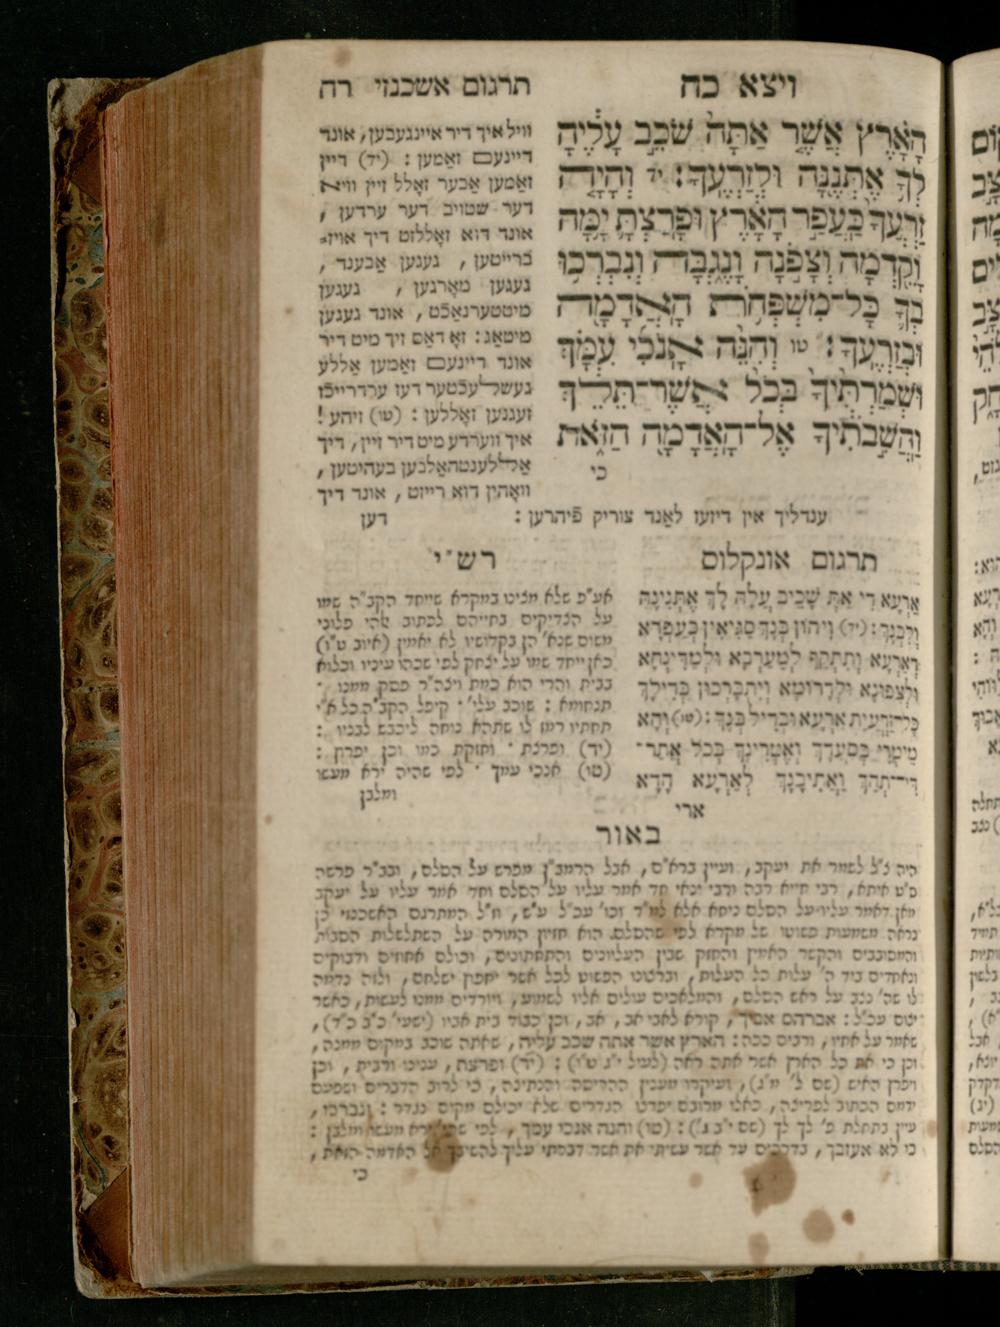 ויצא כח
תרגום אשכנזי רח
הָאָרֶץ אֲשֶׁר אַתָּה שֹׁכֵב עָלֶיהָ
לְךָ אֶתְּנֶנָּה וּלְזַרְעֶךָ: יד וְהָיָה
זַרְעֲךָ כַּעֲפַר הָאָרֶץ וּפָרַצְתָּ יָמָּה
וָקֵדְמָה וְצָפֹנָה וָנֶגְבָּה וְנִבְרְכוּ
בְךָ כָּל־מִשְׁפְּחֹת הָאֲדָמָה
וּבְזַרְעֶךָ: טו וְהִנֵּה אָנֹכִי עִמָּךְ
וּשְׁמַרְתִּיךָ בְּכֹל אֲשֶׁר־תֵּלֵךְ
וַהֲשִׁבֹתִיךָ אֶל־הָאֲדָמָה הַזֹּאת
כי
וויל איך דיר איינגעבען, אונד
דיינעם זאמען : (יד) דיין
זאמען אבער זאלל זיין וויא
דער שטויב דער ערדען ,
אונד דוא זאללזט דיך אויז-
ברייטען , געגען אבענד ,
געגען מארגען , געגען
מיטטערנאכט, אונד געגען
מיטאג: זא דאס זיך מיט דיר
אונד דיינעם זאמען אללע
געשלעכטער דעז ערדרייכז
זעגנען זאללען: (טו) זיהע!
איך ווערדע מיט דיר זיין, דיך
אללענטהאלבען בעהיטען,
וואהין דוא רייזט, אונד דיך
ענדליך אין דיזעז לאנד צוריק פיהרען: דען
תרגום אונקלוס
אַרְעָא דִי אַתְּ שָׁכִיב עֲלַהּ לָךְ אֶתְּנִינַהּ
וְלִבְנָךְ: (יד) וִיהוֹן בְּנָךְ סַגִּיאִין כְּעַפְרָא
דְאַרְעָא וְתִתְקַף לְמַעַרְבָא וּלְמָדִינְחָא
וּלְצִפּוּנָא וּלְדָרוֹמָא וְיִתְבָּרְכוּן בְּדִילָךְ
כָּל־זַרְעֲיַת אַרְעָא וּבְדִיל בְּנָךְ: (טו) וְהָא
מֵימְרִי בְּסַעֲדָךְ וְאֶטְּרִינָךְ בְּכָל אֲתַר־
דִּי־תְהָךְ וַאֲתִיבִנָּךְ לְאַרְעָא הָדָא
ארי
רש"י
אע"פ שלא מצינו במקרא שייחד הקב"ה שמו
על הצדיקים בחייהם לכתוב אלהי פלוני
משום שנא' הן בקדושיו לא יאמין (איוב ט"ו)
כאן ייחד שמו על יצחק לפי שכהו עיניו וכלוא
בבית והרי הוא כמת ויצה"ר פסק ממנו ·
תנחומא : שוכב עלי' · קיפל הקב"ה כל א"י
תחתיו רמז לו שתהא נוחה ליכבש לבניו :
(יד) ופרצת · וחזקת כמו וכן יפרוץ :
(טו) אנכי עמך · לפי שהיה ירא מעשו
ומלבן
באור
היה נ"ל לשמר את יעקב, ועיין ברא"ם, אבל הרמב"ן מפרש על הסלם, ובב"ר פרשה
ס"ט איתא, רבי חייא רבה ורבי ינאי חד אמר עליו על הסלם וחד אמר עליו על יעקב
מאן דאמר עליו על הסלם ניחא אלא למ"ד וכו' עכ"ל ע"ש, וז"ל המתרגם האשכנזי כן
נראה משמעות פשוטו של מקרא לפי שהסלם הוא חזיון המורה על השתלשלות הסבות
והמסובבים והקשר האמיץ והחזק שבין העליונים והתחתונים, וכולם אחוזים ודבוקים
ונאחדים ביד ה' עלות כל העלות, וברצונו הפשוט לכל אשר יחפוץ ישלחם, ולזה נדמה
לו שה' נצב על ראש הסלם, והמלאכים עולים אליו לשמוע, ויורדים ממנו לעשות, כאשר
יצום עכ"ל: אברהם אביך, קורא לאבי אב, אב, וכן כבוד בית אביו (ישעי' כ"ב כ"ד),
שאמר על אחיו, ורבים ככה: הארץ אשר אתה שכב עליה, שאתה שוכב במקום ממנה,
וכן כי את כל הארץ אשר אתה ראה (לעיל י"ג ט"ו) : (יד) ופרצת, ענינו ורבית, וכן
ויפרץ האיש (שם ל' מ"ג), ועיקרו מענין ההריסה והנתיצה, כי לרוב הדברים ושפעם
ידמם הכתוב לפריצה, כאלו מרובם יפרצו הגדרים שלא יכילם מקום נגדר : ונברכו,
עיין בתחלת פ' לך לך (שם י"ב ג') : (טו) והנה אנכי עמך , לפי שהי' ירא מעשו ומלבן :
כי לא אעזבך, בדרכים עד אשר עשיתי את אשר דברתי עליך להשיבך אל האדמה הזאת,
כי